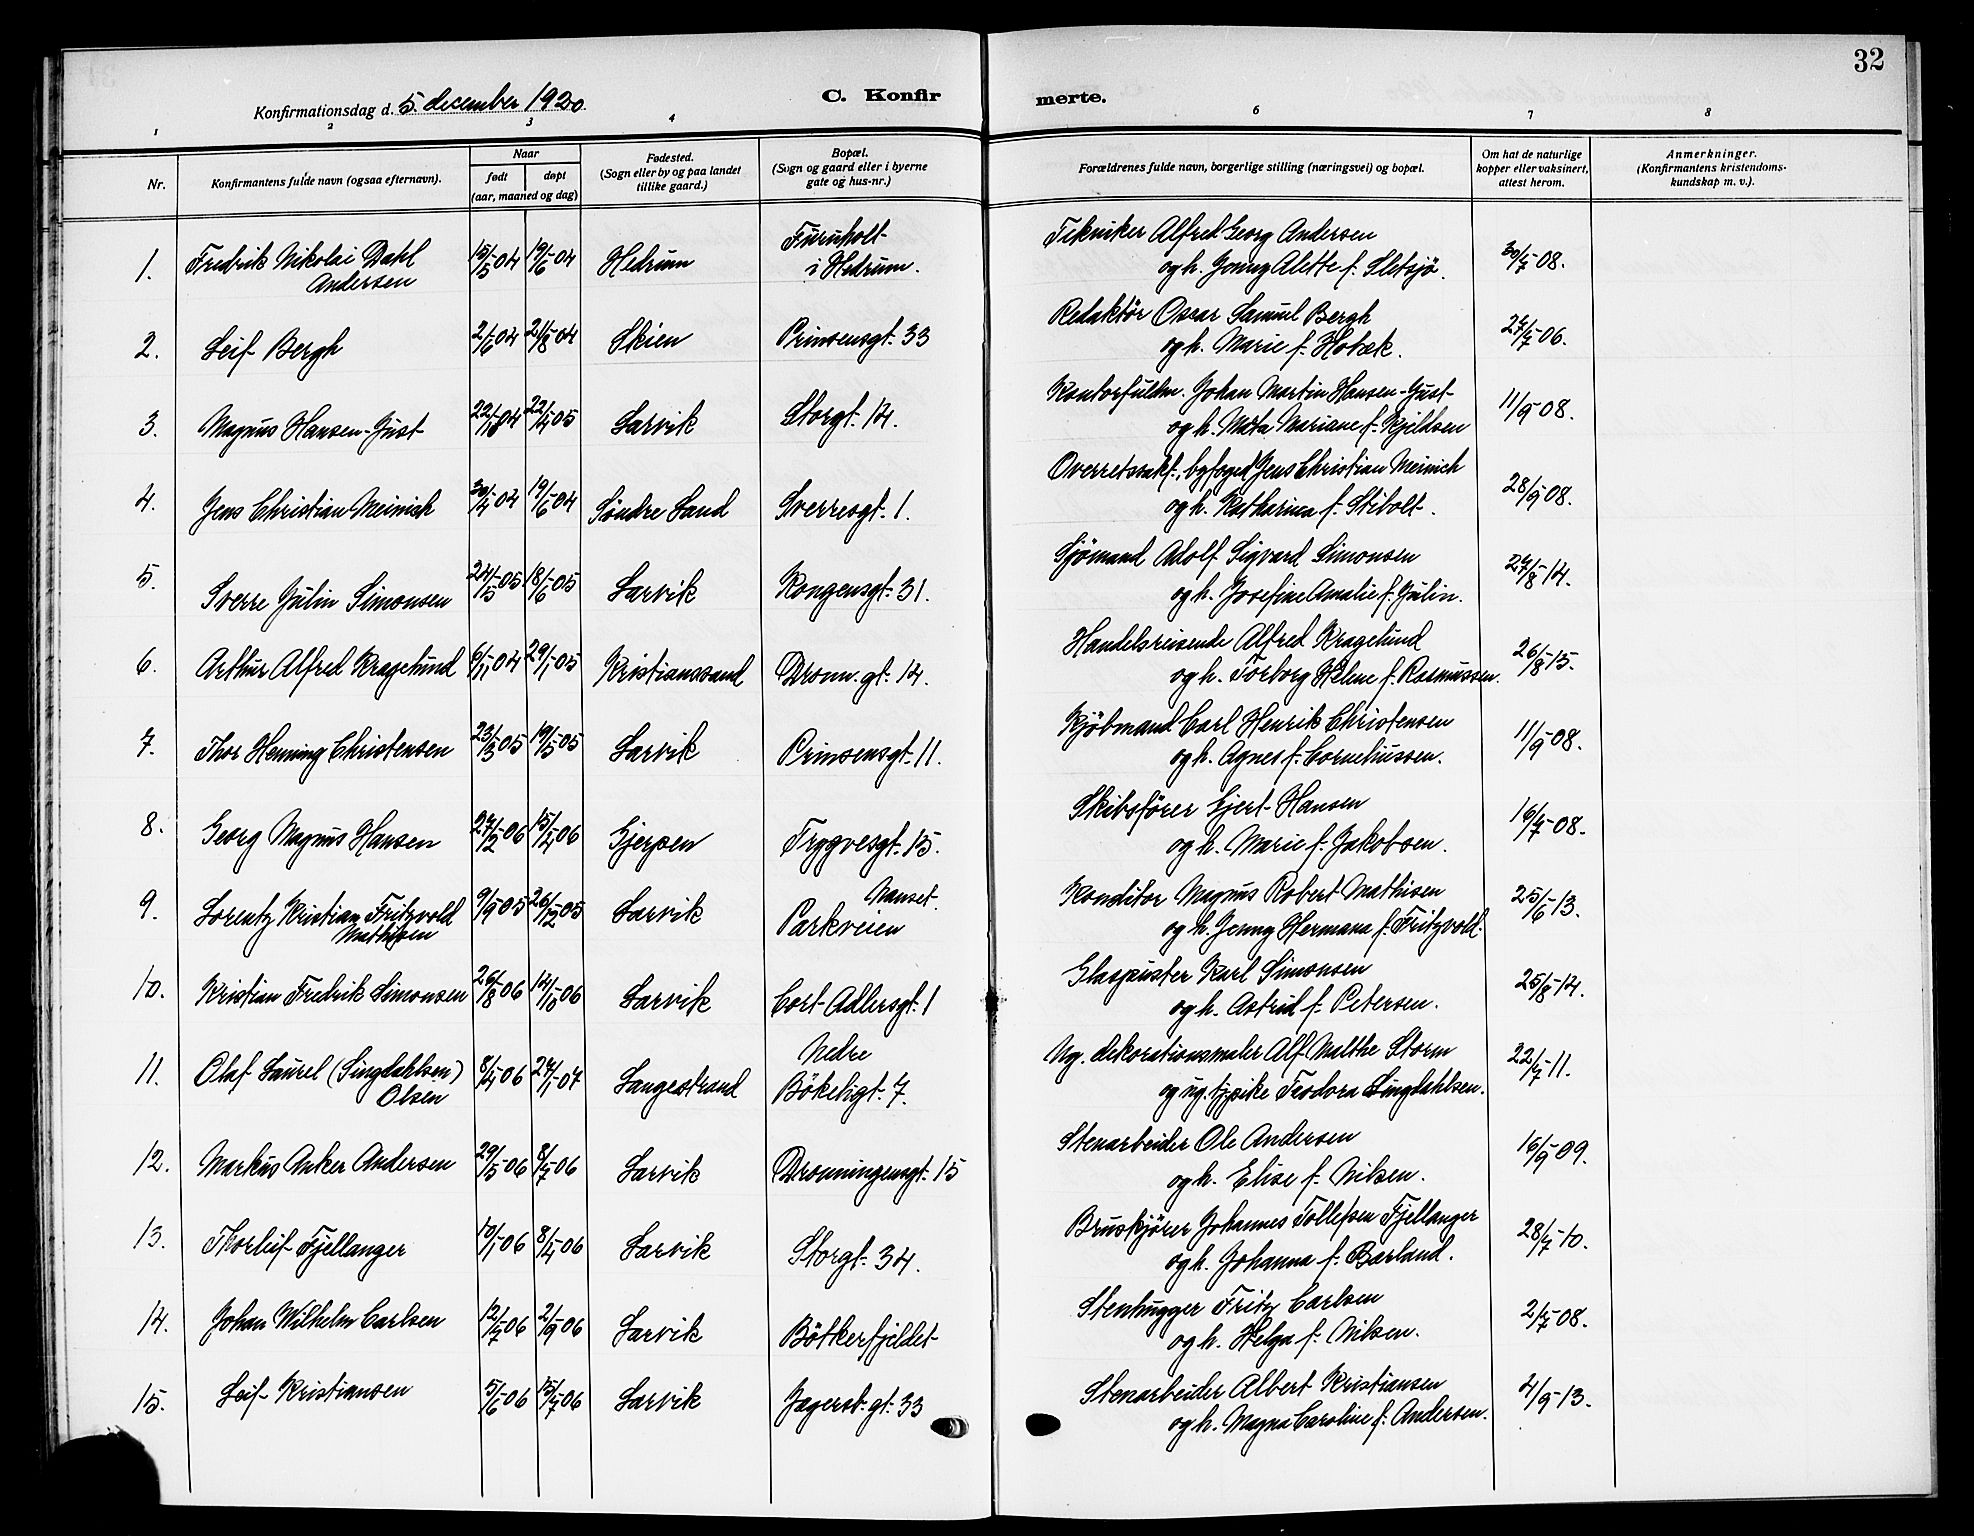 32
Konfirmationsdag d. 5. december 1920.
C. Konfir
merte.
1 2 3 4 6 7 8
Nr.
Konfirmantens fulde navn (ogsaa efternavn).
Naar
født
døpt
(aar, maaned og dag)
Fødested.
(Sogn eller by og paa landet
tillike gaard.)
Bopæl.
(Sogn og gaard eller i byerne
gate og hus-nr.)
Forældrenes fulde navn, borgerlige stilling (næringsvei) og bopæl.
Om hat de naturlige
kopper eller vaksinert,
attest herom.
Anmerkninger.
(Konfirmantens kristendoms-
kundskap m. v.).
1. Fredrik Nikolai Dahl
Andersen
15/5-04 19/6-04 Hedrum
Furuholt
i Hedrum.
Tekniker Alfred Georg Andersen
og h. Jenny Alette f. Sletsjö.
30/7-08.
2. Leif Bergh 2/6-04 21/8-04 Skien Prinsensgt. 33
Redaktör Oscar Samuel Bergh
og h. Marie f. Hobæk.
27/7-06.
3. Magnus Hansen-Just 22/10-04 22/4-05 Larvik Storgt. 14.
Kontorfuldm. Johan Martin Hansen-Just
og h. Marta Mariane f. Kjeldsen
11/9-08.
4. Jens Christian Meinich 30/4-04 19/6-04 Söndre Land Sverresgt. 1.
Overretssakf., byfoged Jens Christian Meinich
og h. Katharina f. Stibolt.
28/9-08.
5. Sverre Julin Simonsen 24/5-05 18/6-05 Larvik Kongensgt. 31.
Sjömand Adolf Sigvard Simonsen
og h. Josefine Amalie f. Julin.
27/8-14.
6. Arthur Alfred Kragelund 6/11-04 29/1-05 Kristianssand Dronn. gt. 14.
Handelsreisende Alfred Kragelund
og h. Torborg Helene f. Rasmussen.
26/8-15.
7. Thor Henning Christensen 23/3-05 19/5-05 Larvik Prinsensgt. 11.
Kjöbmand Carl Henrik Christensen
og h. Agnes f. Corneliussen.
11/9-08.
8. Georg Magnus Hansen 27/2-06 15/4-06 Gjerpen Trygvesgt. 15.
Skibsförer Gjert Hansen
og h. Marie f. Jakobsen.
16/7-08.
9. Lorentz Kristian Fritzvold
Mathisen
9/9-05 26/12-05 Larvik
Nanset.
Parkveien
Konditor Magnus Robert Mathisen
og h. Jenny Hermana f. Fritzvold.
25/6-13.
10. Kristian Fredrik Simonsen 26/8-06 14/10-06 Larvik Cort Adlersgt. 1
Glaspuster Karl Simonsen
og h. Astrid f. Petersen.
25/8-14.
11. Olaf Laurel (Lingdahlsen)
Olsen
8/4-06 27/1-07 Langestrand
Nedre
Bökeligt. 7.
Ug. dekorationsmaler Alf Malthe Storm
og ug. tj.pike Teodora Lingdahlsen.
22/7-11.
12. Markus Anker Andersen 29/5-06 8/7-06 Larvik Dronningensgt. 15
Stenarbeider Ole Andersen
og h. Elise f. Nilsen.
16/9-09.
13. Thorleif Fjellanger 10/1-06 8/4-06 Larvik Storgt. 34.
Bruskjörer Johannes Tollefsen Fjellanger
og h. Johanna f. Barland.
28/7-10.
14. Johan Wilhelm Carlsen 12/7-06 2/9-06 Larvik Bötkerfjeldet
Stenhugger Fritz Carlsen
og h. Helga f. Nilsen.
2/7-08.
15. Leif Kristiansen 5/6-06 15/7-06 Larvik Jegerst. gt. 33
Stenarbeider Albert Kristiansen
og h. Magna Caroline f. Andersen.
4/9-13.